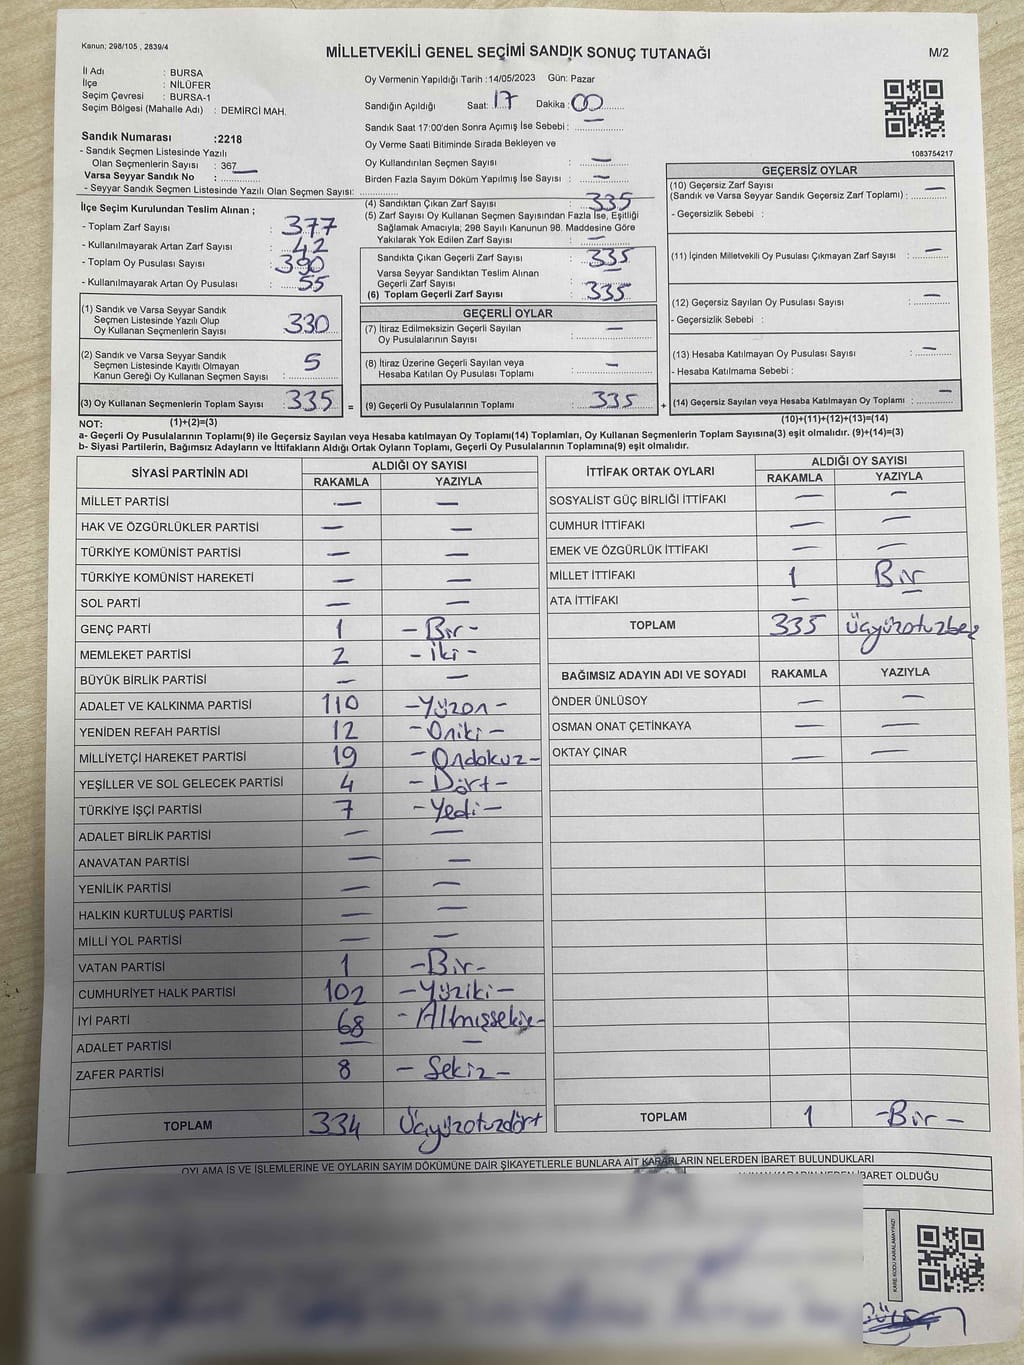 Kanun; 298/105 , 2839/4
MİLLETVEKİLİ GENEL SEÇİMİ SANDIK SONUÇ TUTANAĞI
M/2
İl Adı : BURSA
İlçe : NİLÜFER
Seçim Çevresi : BURSA-1
Seçim Bölgesi (Mahalle Adı) : DEMİRCİ MAH.
Sandık Numarası :2218
- Sandık Seçmen Listesinde Yazılı
Olan Seçmenlerin Sayısı : 367
Varsa Seyyar Sandık No : —
- Seyyar Sandık Seçmen Listesinde Yazılı Olan Seçmen Sayısı:
Oy Vermenin Yapıldığı Tarih :14/05/2023 Gün: Pazar
Sandığın Açıldığı Saat: 17 Dakika : 00
Sandık Saat 17:00'den Sonra Açımış İse Sebebi : —
Oy Verme Saati Bitiminde Sırada Bekleyen ve
Oy Kullandırılan Seçmen Sayısı : —
Birden Fazla Sayım Döküm Yapılmış İse Sayısı : —
1083754217
İlçe Seçim Kurulundan Teslim Alınan ;
- Toplam Zarf Sayısı : 377
- Kullanılmayarak Artan Zarf Sayısı : 42
- Toplam Oy Pusulası Sayısı : 390
- Kullanılmayarak Artan Oy Pusulası : 55
(1) Sandık ve Varsa Seyyar Sandık
Seçmen Listesinde Yazılı Olup
Oy Kullanan Seçmenlerin Sayısı : 330
(2) Sandık ve Varsa Seyyar Sandık
Seçmen Listesinde Kayıtlı Olmayan
Kanun Gereği Oy Kullanan Seçmen Sayısı : 5
(3) Oy Kullanan Seçmenlerin Toplam Sayısı : 335 =
(4) Sandıktan Çıkan Zarf Sayısı : 335
(5) Zarf Sayısı Oy Kullanan Seçmen Sayısından Fazla İse, Eşitliği
Sağlamak Amacıyla; 298 Sayılı Kanunun 98. Maddesine Göre
Yakılarak Yok Edilen Zarf Sayısı : —
Sandıkta Çıkan Geçerli Zarf Sayısı : 335
Varsa Seyyar Sandıktan Teslim Alınan
Geçerli Zarf Sayısı : —
(6) Toplam Geçerli Zarf Sayısı : 335
GEÇERLİ OYLAR
(7) İtiraz Edilmeksizin Geçerli Sayılan
Oy Pusulalarının Sayısı : —
(8) İtiraz Üzerine Geçerli Sayılan veya
Hesaba Katılan Oy Pusulası Toplamı : —
(9) Geçerli Oy Pusulalarının Toplamı : 335 +
GEÇERSİZ OYLAR
(10) Geçersiz Zarf Sayısı
(Sandık ve Varsa Seyyar Sandık Geçersiz Zarf Toplamı) : —
- Geçersizlik Sebebi :
(11) İçinden Milletvekili Oy Pusulası Çıkmayan Zarf Sayısı : —
(12) Geçersiz Sayılan Oy Pusulası Sayısı : —
- Geçersizlik Sebebi :
(13) Hesaba Katılmayan Oy Pusulası Sayısı : —
- Hesaba Katılmama Sebebi :
(14) Geçersiz Sayılan veya Hesaba Katılmayan Oy Toplamı : —
NOT: (1)+(2)=(3) (10)+(11)+(12)+(13)=(14)
a- Geçerli Oy Pusulalarının Toplamı(9) ile Geçersiz Sayılan veya Hesaba katılmayan Oy Toplamı(14) Toplamları, Oy Kullanan Seçmenlerin Toplam Sayısına(3) eşit olmalıdır. (9)+(14)=(3)
b- Siyasi Partilerin, Bağımsız Adayların ve İttifakların Aldığı Ortak Oyların Toplamı, Geçerli Oy Pusulalarının Toplamına(9) eşit olmalıdır.
SİYASİ PARTİNİN ADI ALDIĞI OY SAYISI
RAKAMLA YAZIYLA
MİLLET PARTİSİ — —
HAK VE ÖZGÜRLÜKLER PARTİSİ — —
TÜRKİYE KOMÜNİST PARTİSİ — —
TÜRKİYE KOMÜNİST HAREKETİ — —
SOL PARTİ — —
GENÇ PARTİ 1 -Bir-
MEMLEKET PARTİSİ 2 -İki-
BÜYÜK BİRLİK PARTİSİ — —
ADALET VE KALKINMA PARTİSİ 110 -Yüzon-
YENİDEN REFAH PARTİSİ 12 -Oniki-
MİLLİYETÇİ HAREKET PARTİSİ 19 -Ondokuz-
YEŞİLLER VE SOL GELECEK PARTİSİ 4 -Dört-
TÜRKİYE İŞÇİ PARTİSİ 7 -Yedi-
ADALET BİRLİK PARTİSİ — —
ANAVATAN PARTİSİ — —
YENİLİK PARTİSİ — —
HALKIN KURTULUŞ PARTİSİ — —
MİLLİ YOL PARTİSİ — —
VATAN PARTİSİ 1 -Bir-
CUMHURİYET HALK PARTİSİ 102 -Yüziki-
İYİ PARTİ 68 -Altmışsekiz-
ADALET PARTİSİ — —
ZAFER PARTİSİ 8 -Sekiz-
TOPLAM 334 Üçyüzotuzdört
İTTİFAK ORTAK OYLARI ALDIĞI OY SAYISI
RAKAMLA YAZIYLA
SOSYALİST GÜÇ BİRLİĞİ İTTİFAKI — —
CUMHUR İTTİFAKI — —
EMEK VE ÖZGÜRLÜK İTTİFAKI — —
MİLLET İTTİFAKI 1 Bir
ATA İTTİFAKI — —
TOPLAM 335 Üçyüzotuzbeş
BAĞIMSIZ ADAYIN ADI VE SOYADI RAKAMLA YAZIYLA
ÖNDER ÜNLÜSOY — —
OSMAN ONAT ÇETİNKAYA — —
OKTAY ÇINAR — —
TOPLAM 1 -Bir-
OYLAMA İŞ VE İŞLEMLERİNE VE OYLARIN SAYIM DÖKÜMÜNE DAİR ŞİKAYETLERLE BUNLARA AİT KARARLARIN NELERDEN İBARET BULUNDUKLARI
KARARIN NEDEN İBARET OLDUĞU
KARE KODU KARALAMAYINIZ!